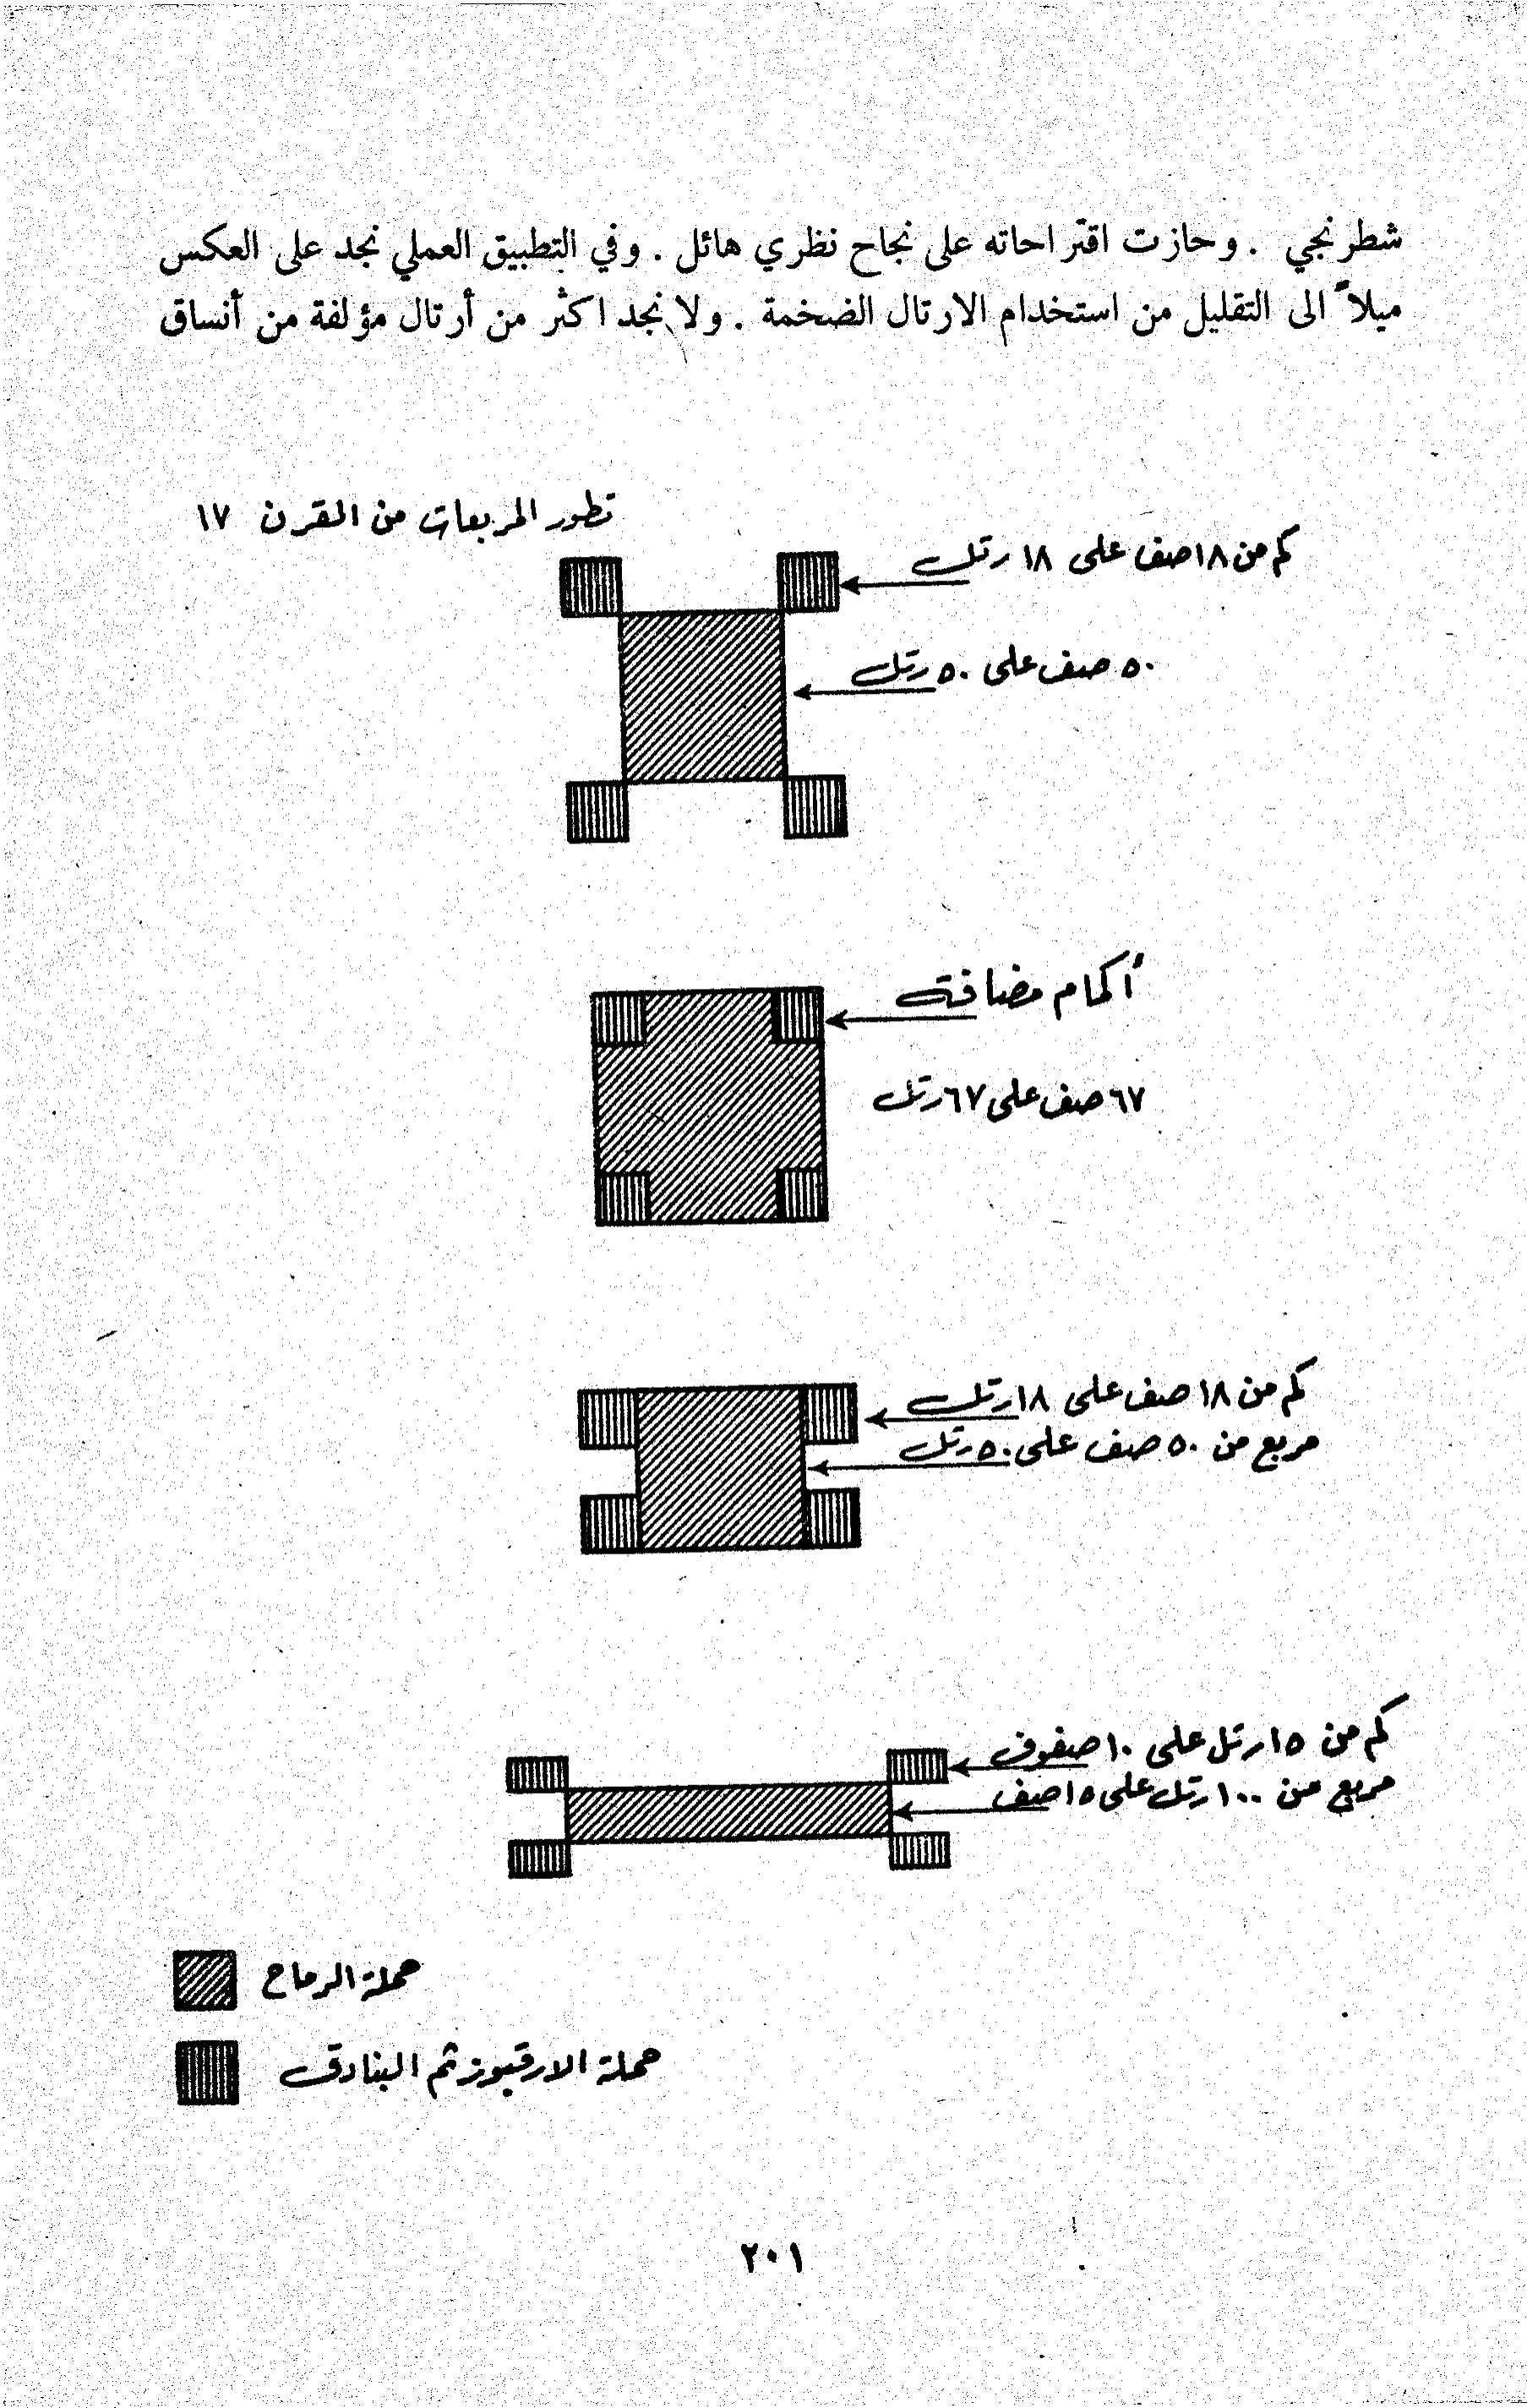 شطرنجي . وحازت اقتراحاته على نجاح نظري هائل . وفي التطبيق العملي نجد على العكس
ميلاً الى التقليل من استخدام الارتال الضخمة . ولا نجد اكثر من أرتال مؤلفة من أنساق
تطور المربعات من القرن ١٧
كم من ١٨ صف على ١٨ رتل
٥٠ صف على ٥٠ رتل
أكمام مضافة
٦٧ صف على ٦٧ رتل
كم من ١٨ صف على ١٨ رتل
مربع من ٥٠ صف على ٥٠ رتل
كم من ١٥ رتل على ١٠ صفوف
مربع من ١٠٠ رتل على ١٥ صف
حملة الرماح
حملة الارقبوز ثم البنادق
٢٠١